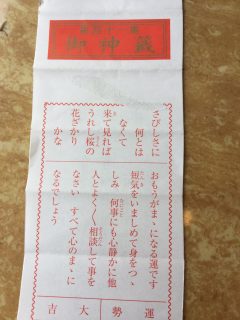 御神籤
さびしさに
何とは
なくて
来て見れば
うれし桜の
花ざかり
かな
おもうがまゝになる運です
短気をいましめて身をつゝ
しみ 何事にも心静かに他
人とよく〱相談して事を
なさい すべて心のまゝに
なるでしょう
運勢
大吉